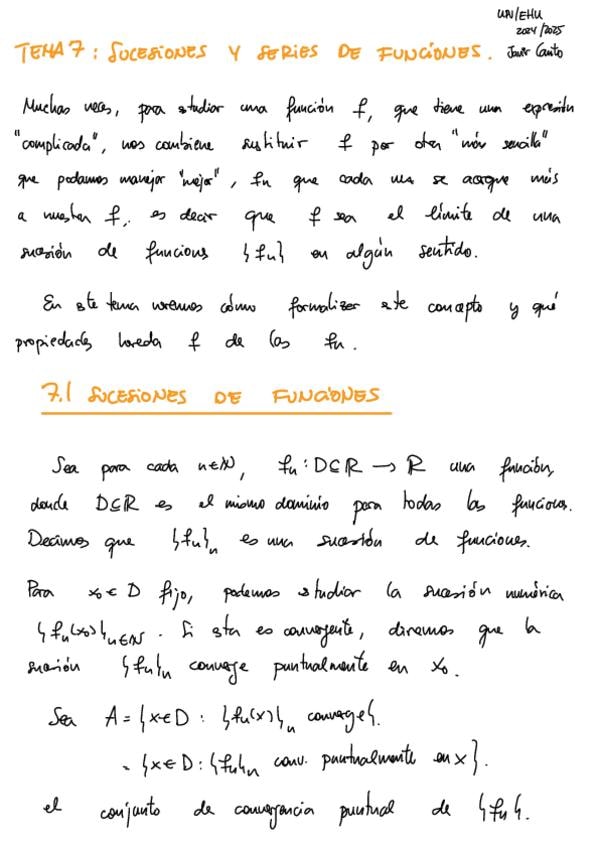 UPV/EHU
2024/2025
TEMA 7: SUCESIONES Y SERIES DE FUNCIONES. Javier Canto
Muchas veces, para estudiar una función f, que tiene una expresión
"complicada", nos combiene sustituir f por otra "más sencilla"
que podamos manejar "mejor", fn que cada vez se acerque más
a nuestra f, es decir que f sea el límite de una
sucesión de funciones {fn} en algún sentido.
En este tema veremos cómo formalizar este concepto y qué
propiedades hereda f de las fn.
7.1 SUCESIONES DE FUNCIONES
Sea para cada n∈ℕ, fn: D⊆ℝ → ℝ una función,
donde D⊆ℝ es el mismo dominio para todas las funciones.
Decimos que {fn}n es una sucesión de funciones.
Para x₀ ∈ D fijo, podemos estudiar la sucesión numérica
{fn(x₀)}n∈ℕ. Si esta es convergente, diremos que la
sucesión {fn}n converge puntualmente en x₀.
Sea A = {x∈D : {fn(x)}n converge}.
= {x∈D : {fn}n conv. puntualmente en x}.
el conjunto de convergencia puntual de {fn}.